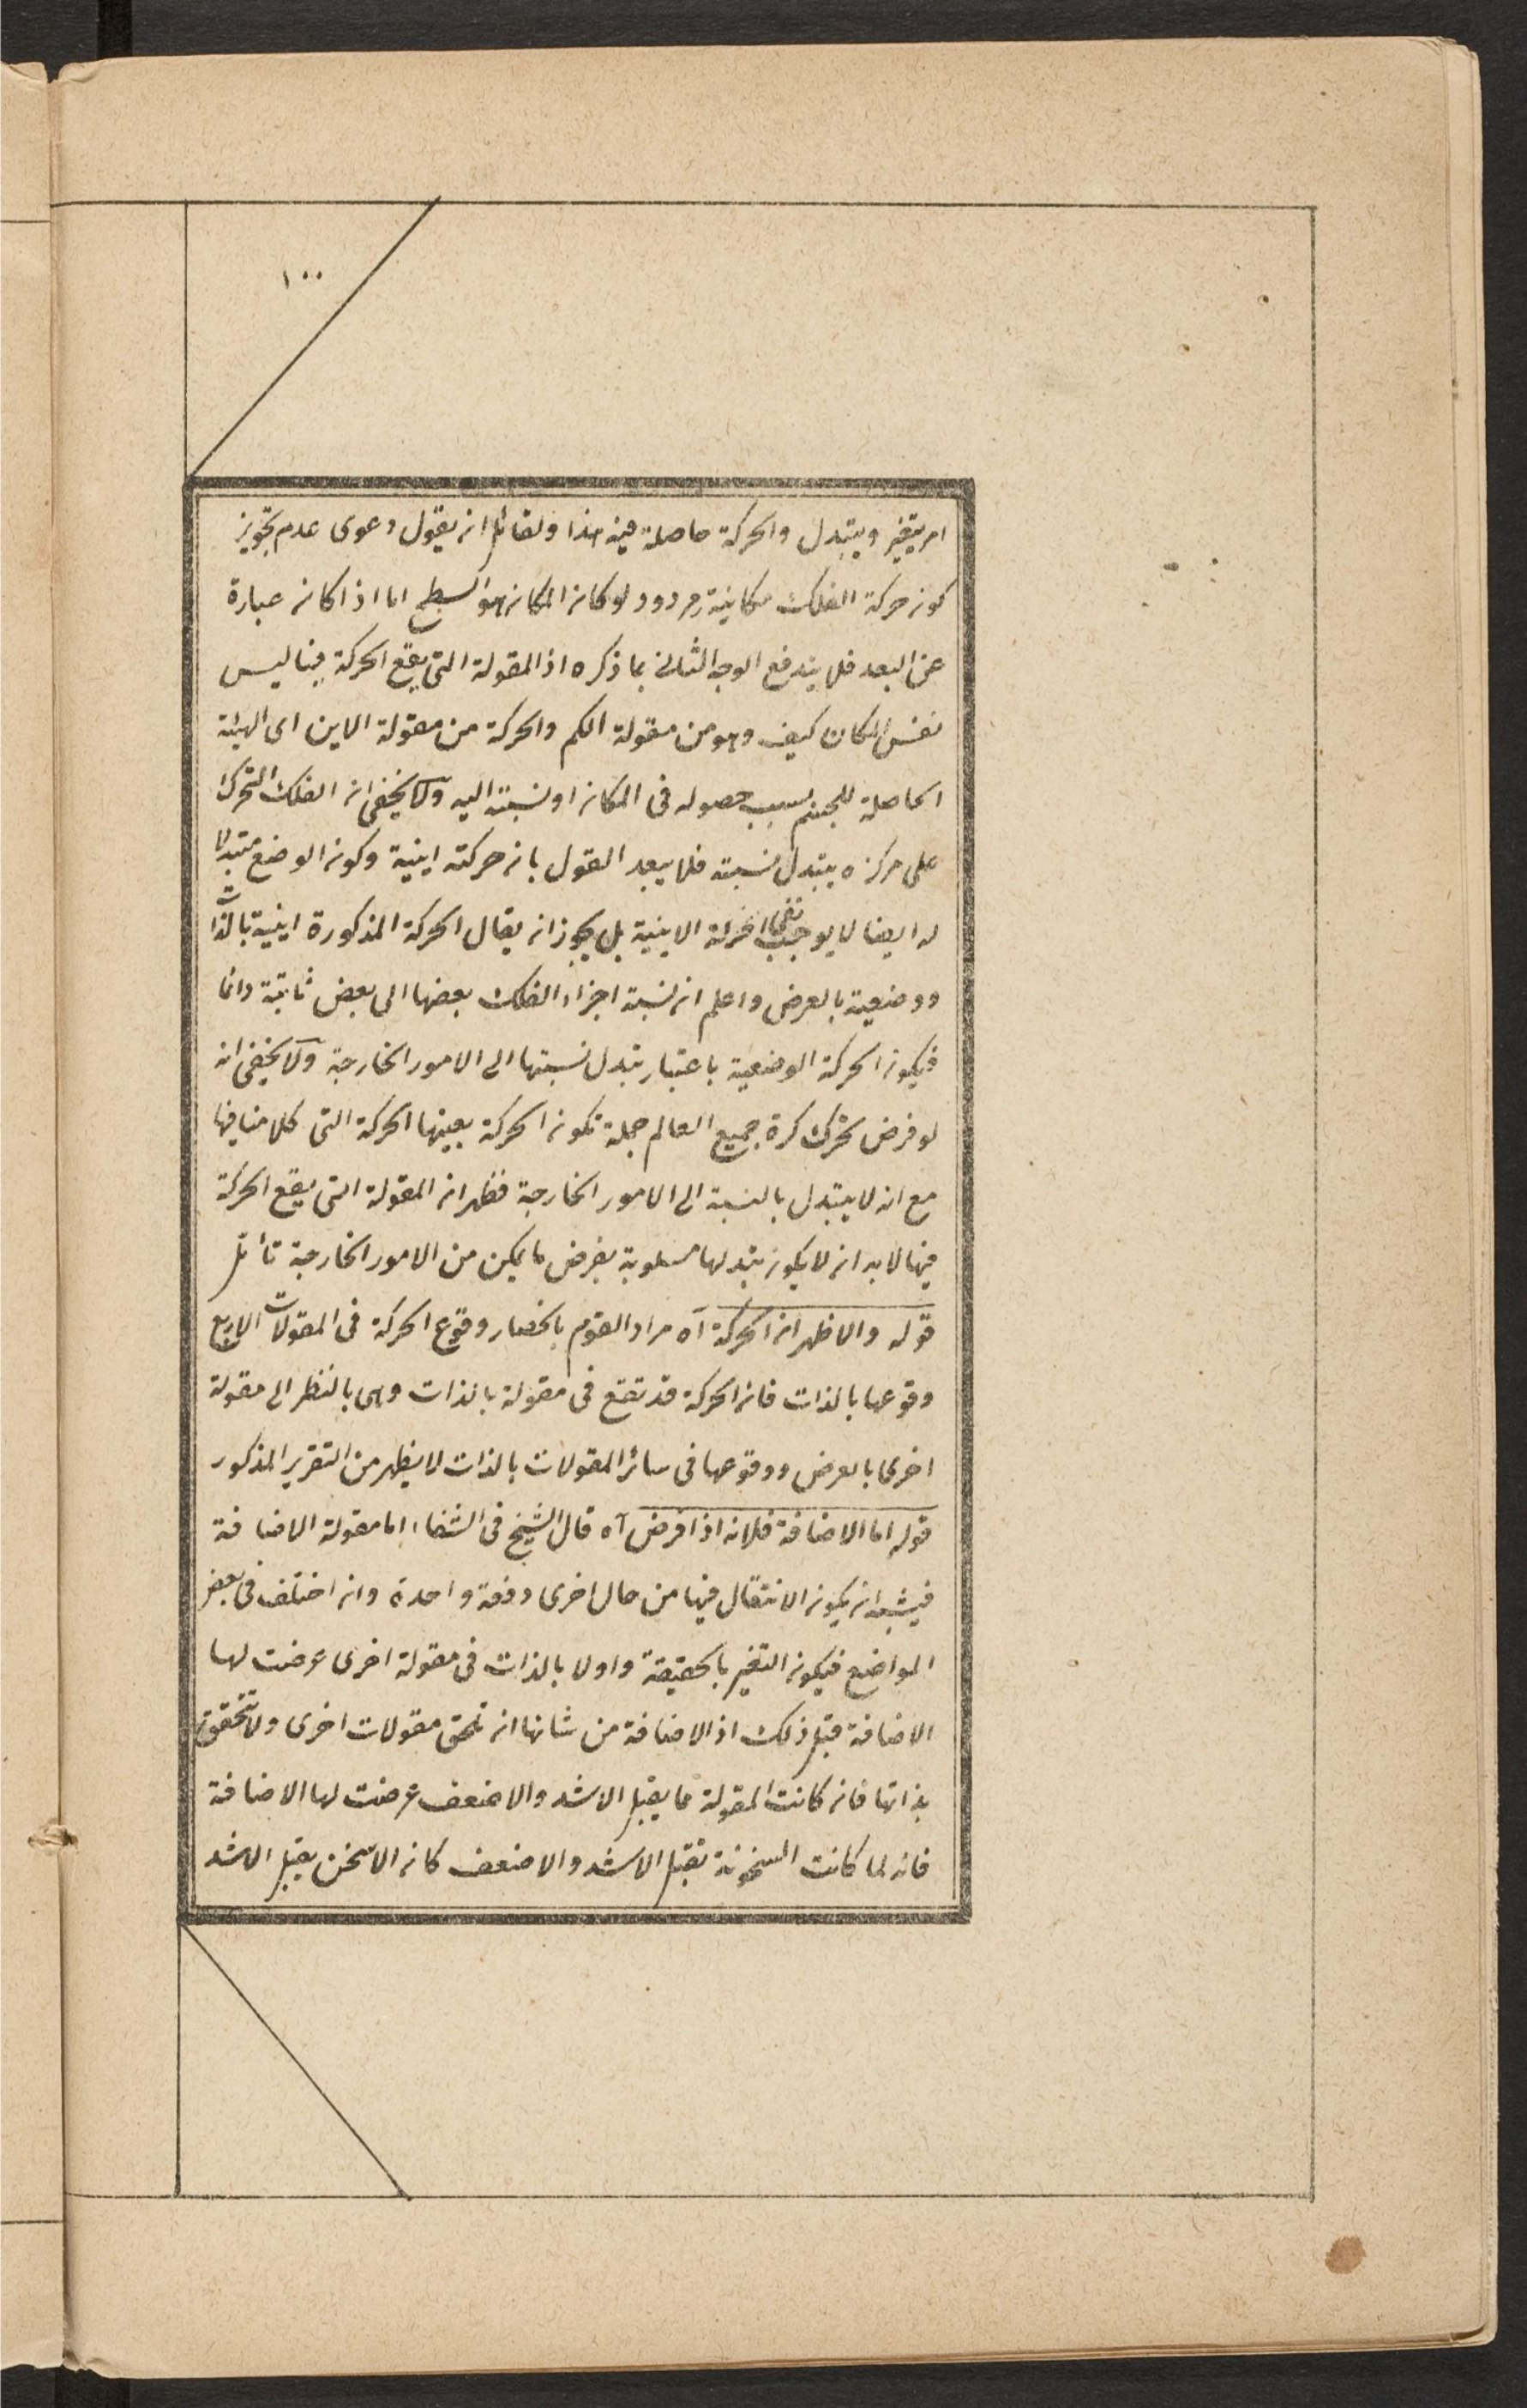 ١٠٠
امر يتغير ويتبدل والحركة حاصلة فيه هذا ولقائل ان يقول دعوى عدم تجويز
كون حركة الفلك مكانية مردود لو كان المكان هو السطح اما اذا كان عبارة
عن البعد فلا يندفع الوجه الثانى بما ذكره اذ المقولة التى يقع الحركة فيها ليس
نفس المكان كيف وهو من مقولة الكم والحركة من مقولة الاين اى الهيئة
الحاصلة للجسم بسبب حصوله فى المكان او نسبته اليه ولا يخفى ان الفلك المتحرك
على مركزه يتبدل نسبته فلا يبعد القول بان حركته اينية وكون الوضع متبدلا
له ايضا لا يوجب نفى الحركة الاينية بل يجوز ان يقال الحركة المذكورة اينية بالذات
ووضعية بالعرض واعلم ان نسبة اجزاء الفلك بعضها الى بعض ثابتة دائما
فيكون الحركة الوضعية باعتبار تبدل نسبتها الى الامور الخارجة ولا يخفى انه
لو فرض تحرك كرة جميع العالم جملة تكون الحركة بعينها الحركة التى كلامنا فيها
مع انه لا يتبدل بالنسبة الى الامور الخارجة فظهر ان المقولة التى يقع الحركة
فيها لا بد ان لا يكون تبدلها مسلوبة بفرض ما يمكن من الامور الخارجة تأمل
قوله والاظهر ان الحركة آه مراد القوم بانحصار وقوع الحركة فى المقولات الاربع
وقوعها بالذات فان الحركة قد تقع فى مقولة بالذات وهى بالنظر الى مقولة
اخرى بالعرض ووقوعها فى سائر المقولات بالذات لا يظهر من التقرير المذكور
قوله اما الاضافة فلانه اذا فرض آه قال الشيخ فى الشفاء اما مقولة الاضافة
فيشبه ان يكون الانتقال فيها من حال اخرى دفعة واحدة وان اختلف فى بعض
المواضع فيكون التغير بالحقيقة واولا بالذات فى مقولة اخرى عرضت لها
الاضافة قبل ذلك اذ الاضافة من شانها ان تلحق مقولات اخرى ولا تتحقق
بذاتها فان كانت المقولة مما يقبل الاشد والاضعف عرضت لها الاضافة
فانه لما كانت السخونة تقبل الاشد والاضعف كان الاسخن يقبل الاشد